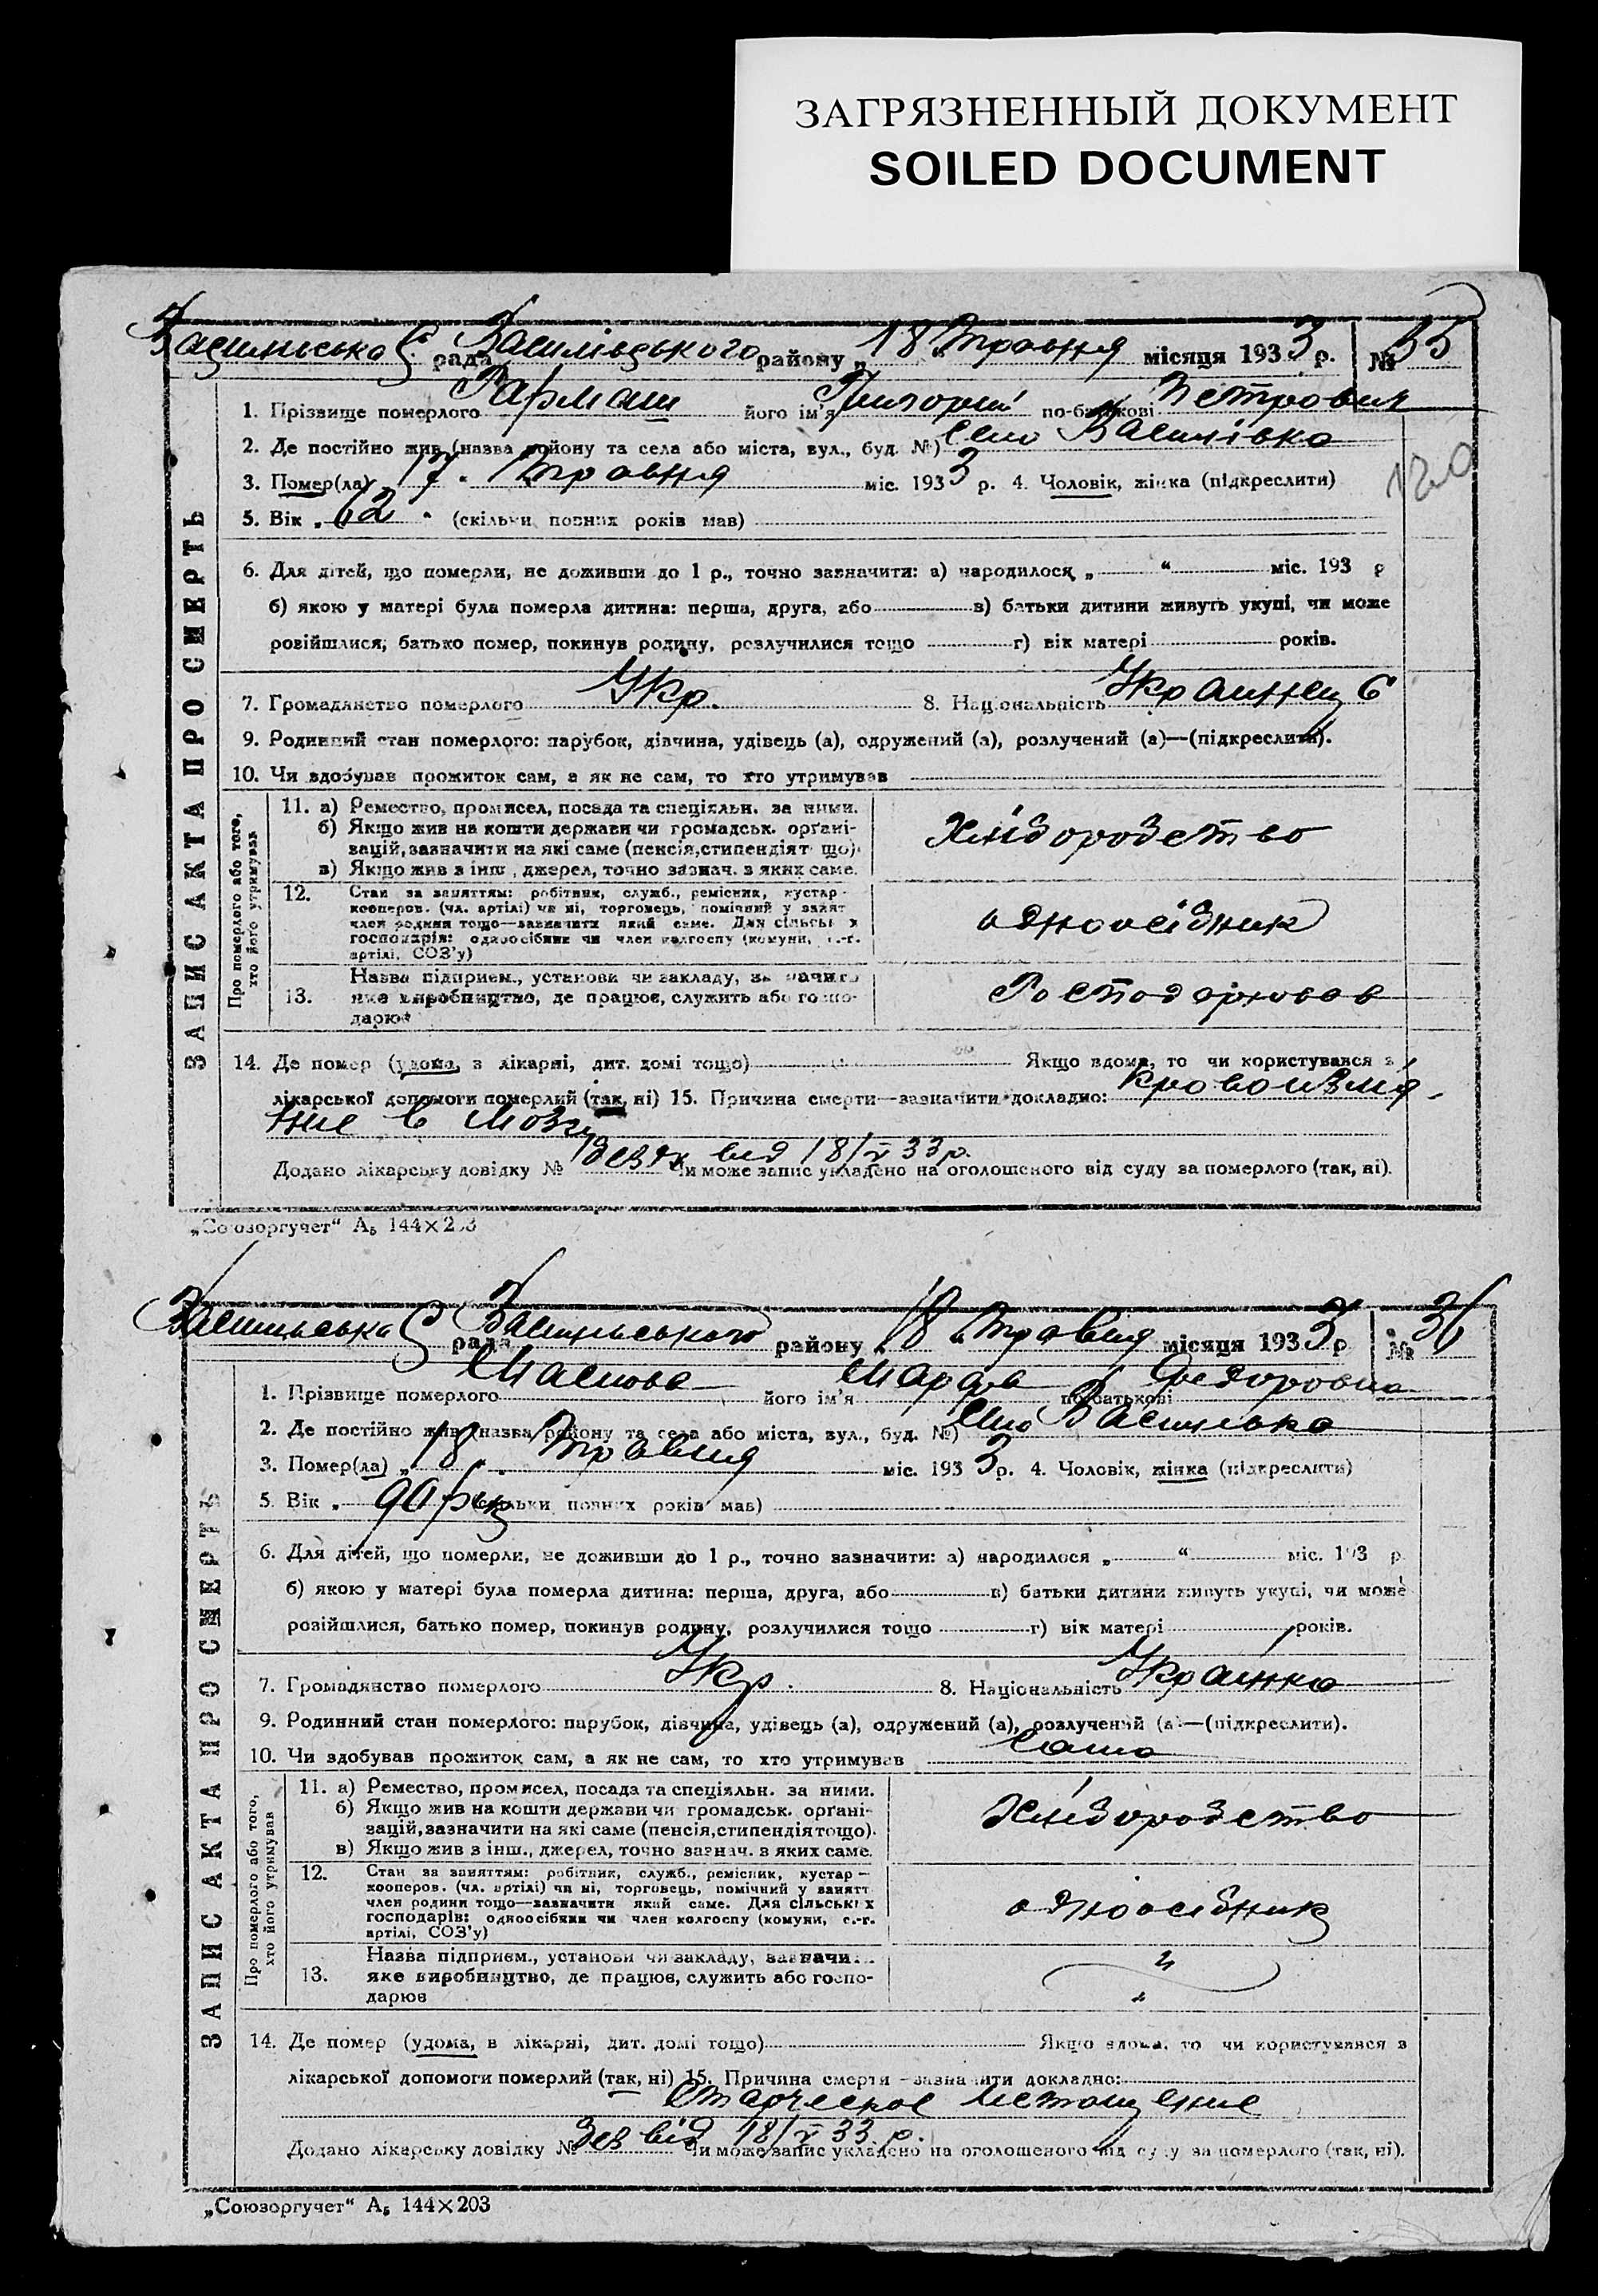 ЗАГРЯЗНЕННЫЙ ДОКУМЕНТ
SOILED DOCUMENT
рада Василівського району „18“ травня місяця 1933 р. № 35
1. Прізвище померлого Гармаш його ім'я Григорий по-батькові Петрович
2. Де постійно жив (назва району та села або міста, вул., буд. №) Село Василівка
3. Помер(ла) „17“ травня міс. 1933 р. 4. Чоловік, жінка (підкреслити)
5. Вік „62“ (скільки повних років мав)
120
6. Для дітей, що померли, не доживши до 1 р., точно зазначити: а) народилося „ “ міс. 193 р
б) якою у матері була померла дитина: перша, друга, або в) батьки дитини живуть укупі, чи може
розійшлися, батько помер, покинув родину, розлучилися тощо г) вік матері років.
7. Громадянство померлого Укр. 8. Національність
9. Родинний стан померлого: парубок, дівчина, удівець (а), одружений (а), розлучений (а)—(підкреслити).
10. Чи здобував прожиток сам, а як не сам, то хто утримував
ЗАПИС АКТА ПРО СМЕРТЬ
Про померлого або того,
хто його утримував
11. а) Ремество, промисел, посада та спеціяльн. за ними.
б) Якщо жив на кошти держави чи громадськ. орґані-
зацій, зазначити на які саме (пенсія, стипендія т що)
в) Якщо жив з інш., джерел, точно зазнач. з яких саме.
Хліборобство
12. Стан за заняттям: робітник, служб., ремісник, кустар -
кооперов. (чл. артілі) чи ні, торговець, помічний у занят
член родини тощо—зазначити який саме. Для сільськ х
господарів: одноосібник чи член колгоспу (комуни, с.-г.
артілі, СОЗ'у)
одноосібник
13. Назва підприєм., установи чи закладу, зазначити
яке виробництво, де працює, служить або госпо-
дарює
Господарював
14. Де помер (удома, в лікарні, дит. домі тощо) Якщо вдома, то чи користувався з
лікарської допомоги померлий (так, ні) 15. Причина смерти—зазначити докладно: кровоизлия-
ние в мозг
Додано лікарську довідку № від 18/V 33 р. Чи може запис укладено на оголошеного від суду за померлого (так, ні).
„Союзоргучет“ А5 144×203
рада Васильського району „18“ травня місяця 1933 р № 36
1. Прізвище померлого його ім'я Марфа по-батькові Федоровна
2. Де постійно жив (назва району та села або міста, вул., буд. №) Село
3. Помер(ла) „18“ травня міс. 1933 р. 4. Чоловік, жінка (підкреслити)
5. Вік „90 (скільки повних років мав)
6. Для дітей, що померли, не доживши до 1 р., точно зазначити: а) народилося „ “ міс. 193 р
б) якою у матері була померла дитина: перша, друга, або в) батьки дитини живуть укупі, чи може
розійшлися, батько помер, покинув родину, розлучилися тощо г) вік матері років.
7. Громадянство померлого Укр. 8. Національність Украінка
9. Родинний стан померлого: парубок, дівчина, удівець (а), одружений (а), розлучений (а)—(підкреслити).
10. Чи здобував прожиток сам, а як не сам, то хто утримував сама
ЗАПИС АКТА ПРО СМЕРТЬ
Про померлого або того,
хто його утримував
11. а) Ремество, промисел, посада та спеціяльн. за ними.
б) Якщо жив на кошти держави чи громадськ. орґані-
зацій, зазначити на які саме (пенсія, стипендія тощо).
в) Якщо жив з інш., джерел, точно зазнач. з яких саме.
Хліборобство
12. Стан за заняттям: робітник, служб., ремісник, кустар —
кооперов. (чл. артілі) чи ні, торговець, помічний у занятт
член родини тощо—зазначити який саме. Для сільськ х
господарів: одноосібник чи член колгоспу (комуни, с.-г.
артілі, СОЗ'у)
одноосібник
13. Назва підприєм., установи чи закладу, зазначи
яке виробництво, де працює, служить або госпо-
дарює
14. Де помер (удома, в лікарні, дит. домі тощо) Якщо вдома, то чи користувався з
лікарської допомоги померлий (так, ні) 15. Причина смерти—зазначити докладно:
Старческое истощение
Додано лікарську довідку № від 18/V 33 р. Чи може запис укладено на оголошеного від суду за померлого (так, ні).
„Союзоргучет“ А5 144×203